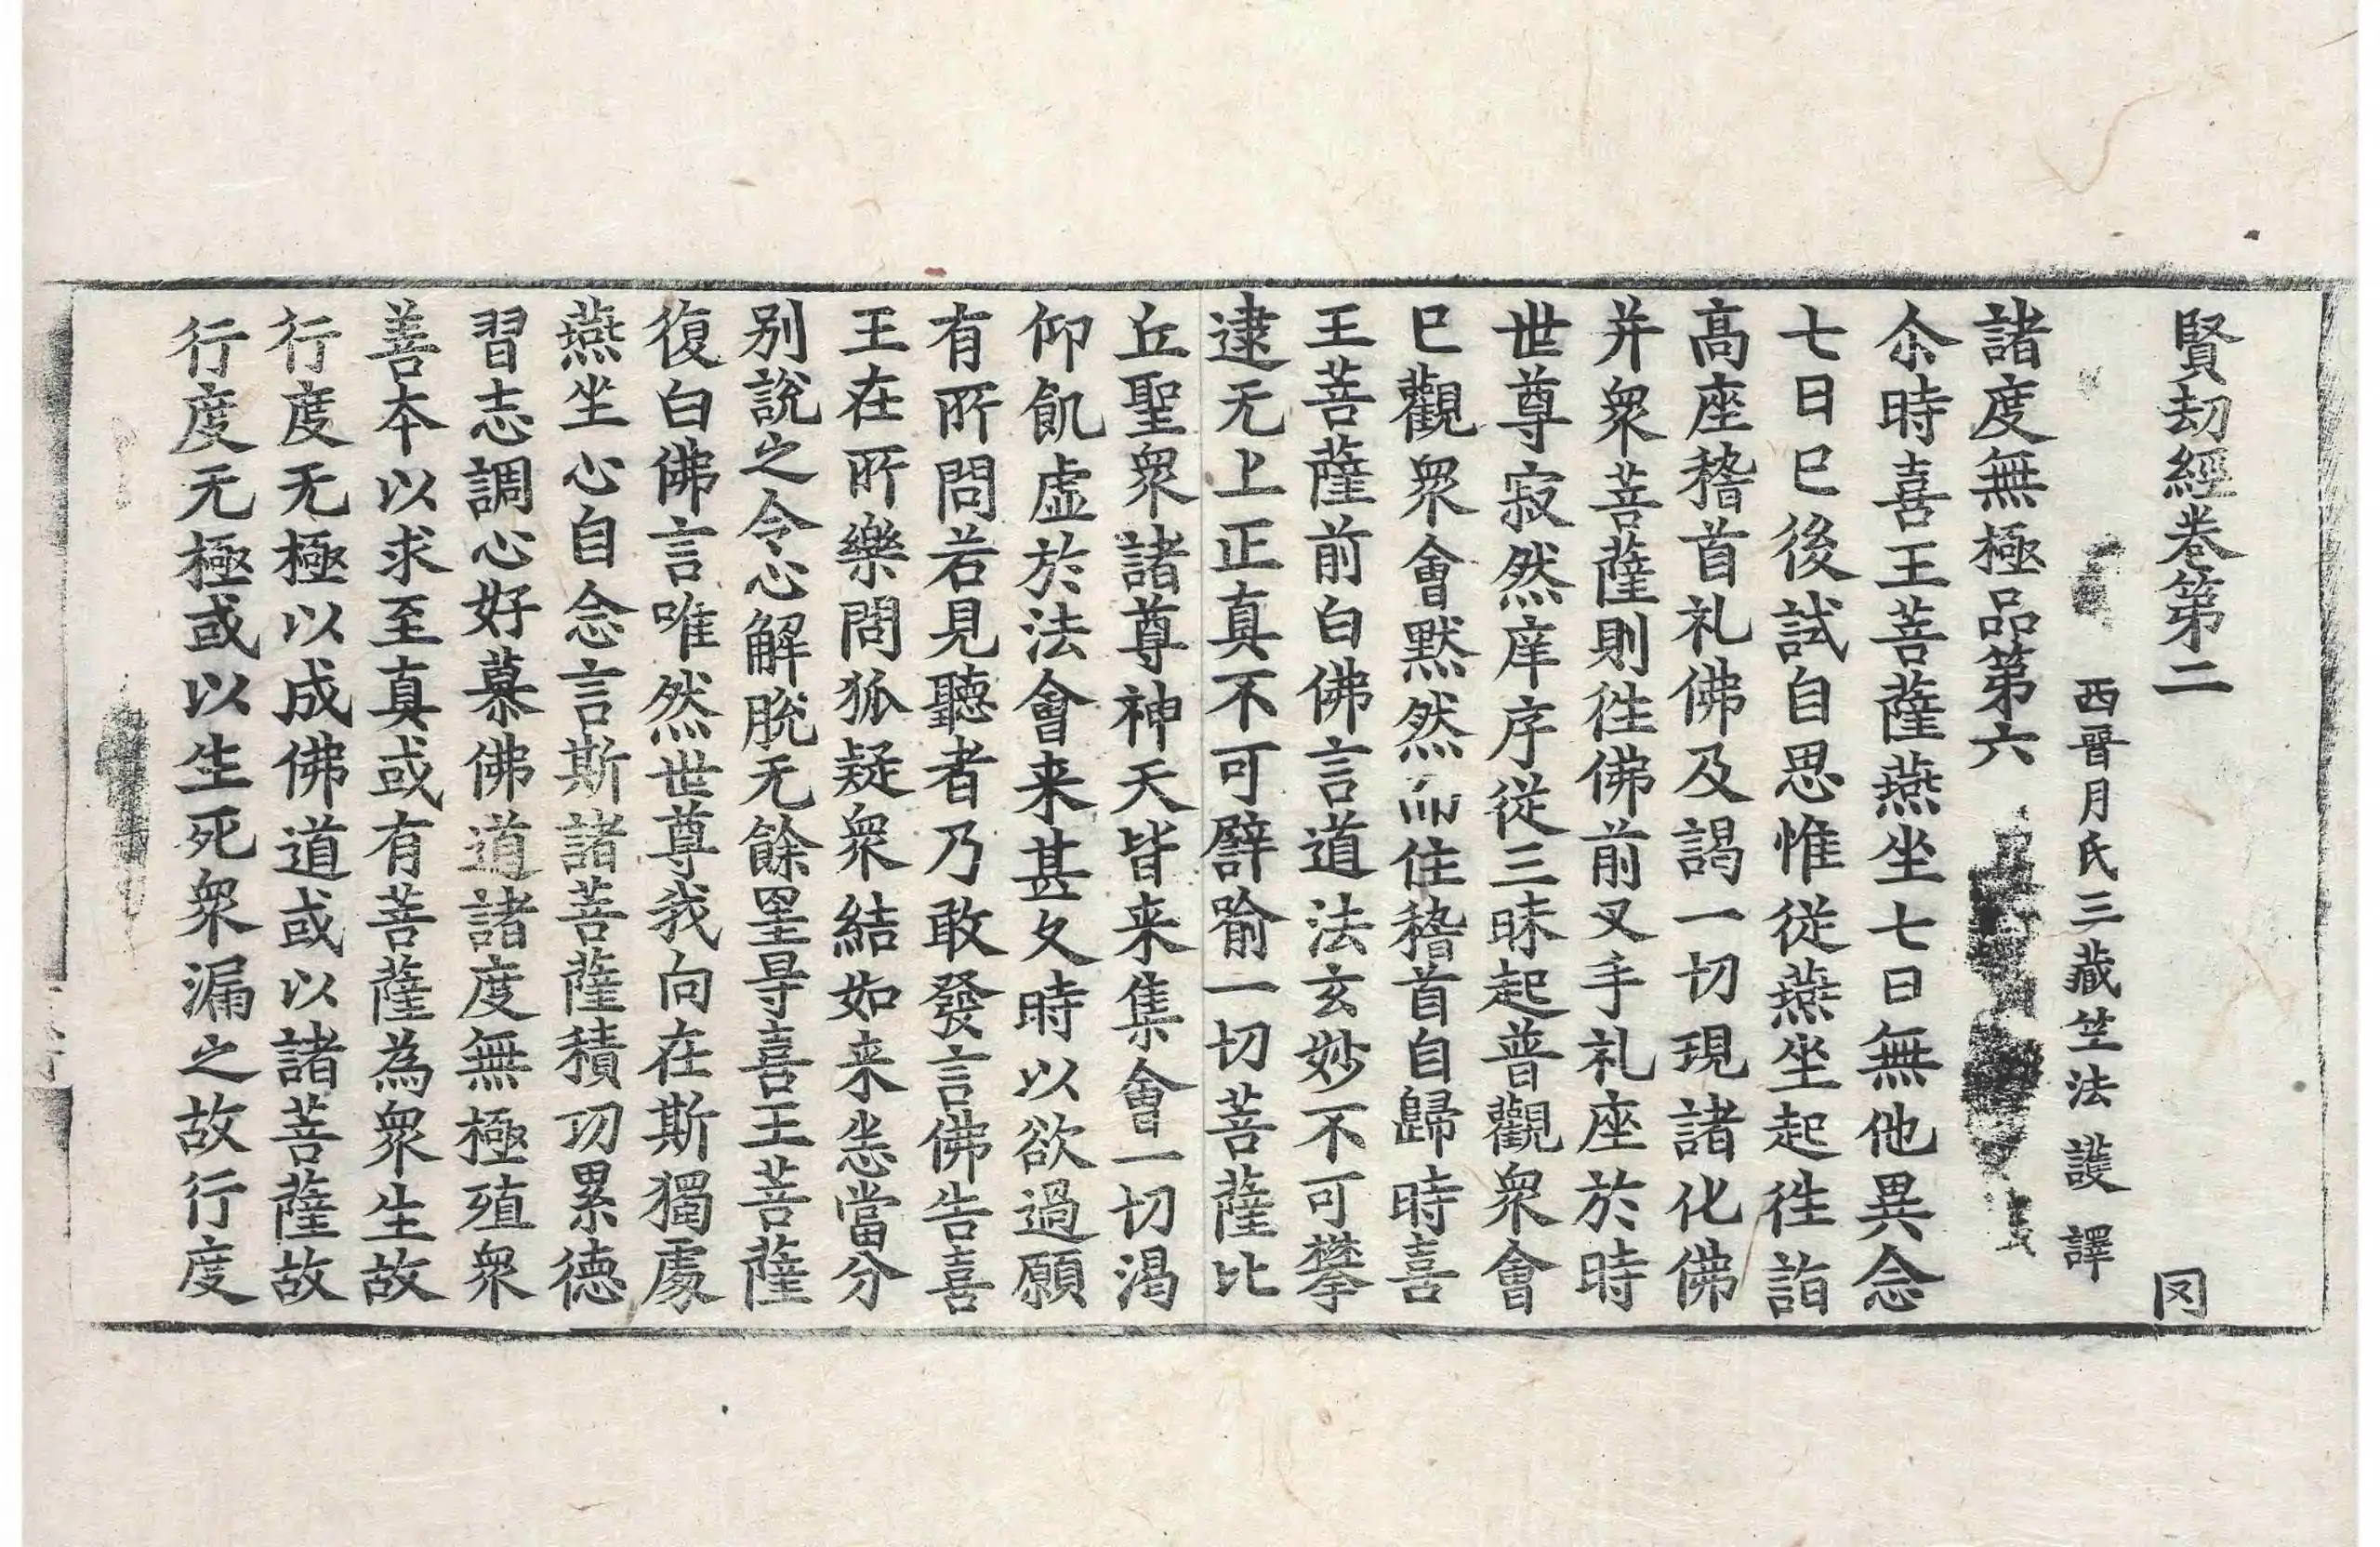 賢劫經卷第二 罔
西晉月氏三藏竺法護譯
諸度無極品第六
尒時喜王菩薩燕坐七日無他異念
七日已後試自思惟從燕坐起徃詣
高座稽首礼佛及謁一切現諸化佛
并衆菩薩則徃佛前叉手礼座於時
世尊寂然庠序從三昧起普觀衆會
已觀衆會默然而住稽首自歸時喜
王菩薩前白佛言道法玄妙不可攀
逮无上正真不可譬喻一切菩薩比
丘聖衆諸尊神天皆来集會一切渴
仰飢虛於法會来甚久時以欲過願
有所問若見聽者乃敢發言佛告喜
王在所樂問狐疑衆結如来恣當分
別說之令心解脫无餘罣㝵喜王菩薩
復白佛言唯然世尊我向在斯獨處
燕坐心自念言斯諸菩薩積功累德
習志調心好慕佛道諸度無極殖衆
善本以求至真或有菩薩為衆生故
行度无極以成佛道或以諸菩薩故
行度无極或以生死衆漏之故行度